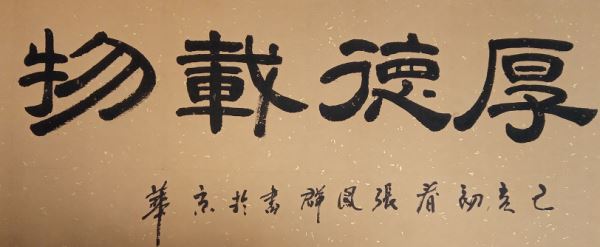 厚德載物
己亥初春張群書於京華